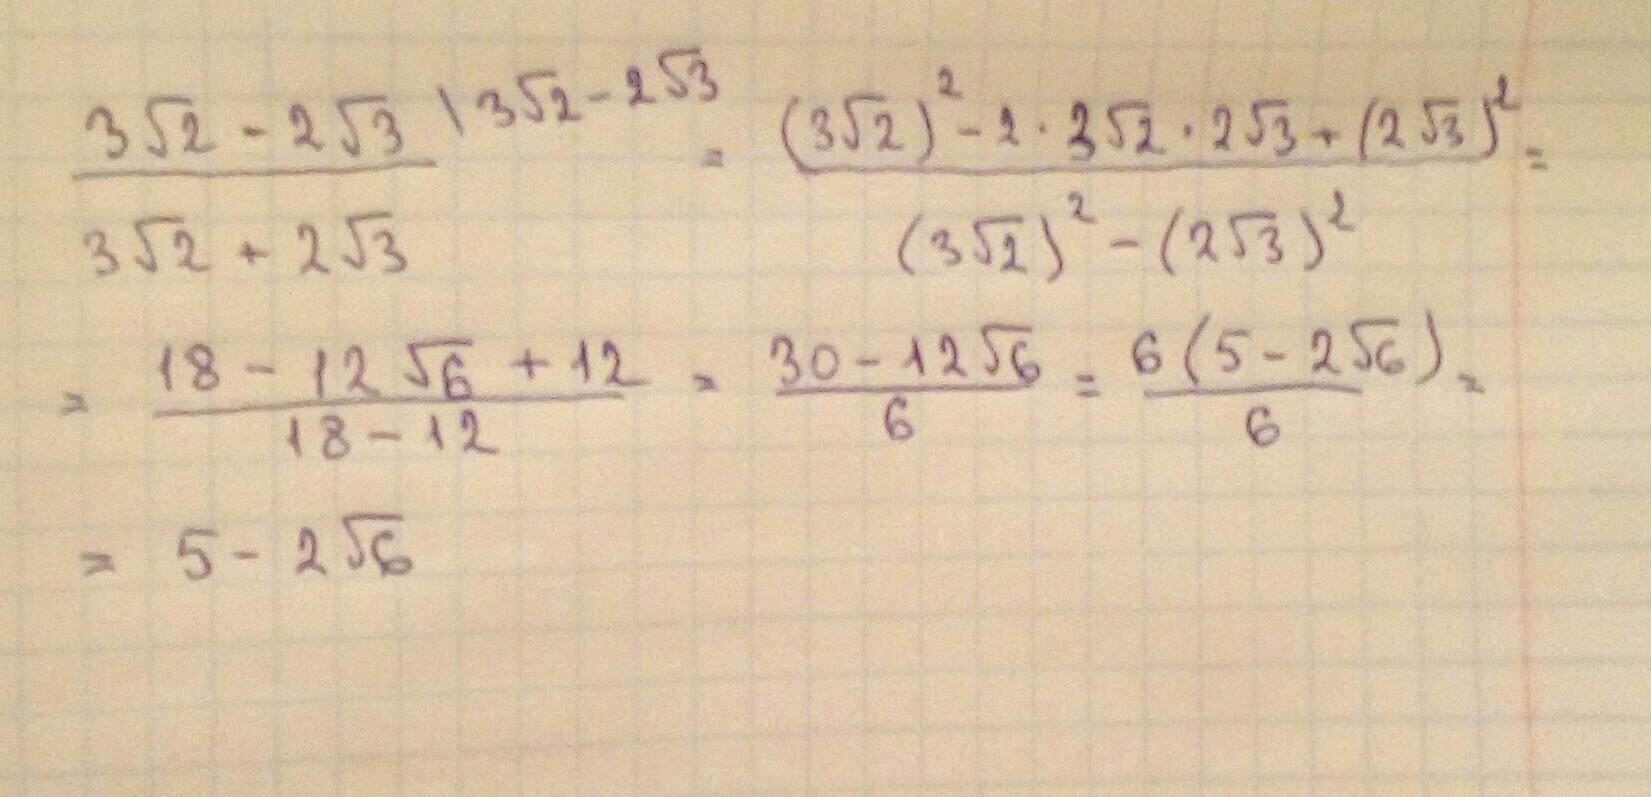 (3√2 - 2√3)/(3√2 + 2√3) \ 3√2 - 2√3 = ((3√2)² - 2 · 3√2 · 2√3 + (2√3)²)/((3√2)² - (2√3)²) =
= (18 - 12√6 + 12)/(18 - 12) = (30 - 12√6)/6 = 6(5 - 2√6)/6 =
= 5 - 2√6